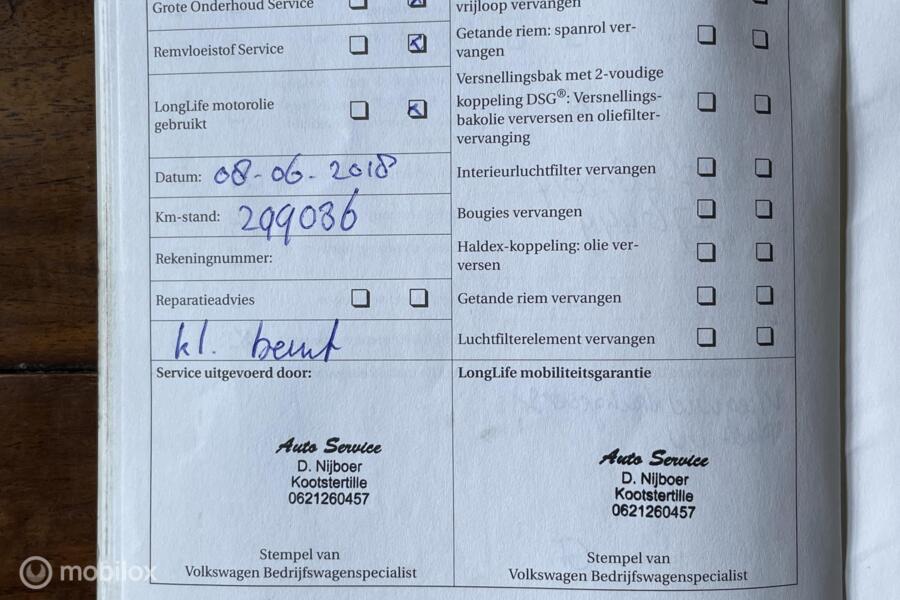 Grote Onderhoud Service
Remvloeistof Service
LongLife motorolie
gebruikt
Datum: 08-06-2018
Km-stand: 299086
Rekeningnummer:
Reparatieadvies
kl. beurt
Service uitgevoerd door:
Auto Service
D. Nijboer
Kootstertille
0621260457
Stempel van
Volkswagen Bedrijfswagenspecialist
vrijloop vervangen
Getande riem: spanrol ver-
vangen
Versnellingsbak met 2-voudige
koppeling DSG®: Versnellings-
bakolie verversen en oliefilter-
vervanging
Interieurluchtfilter vervangen
Bougies vervangen
Haldex-koppeling: olie ver-
versen
Getande riem vervangen
Luchtfilterelement vervangen
LongLife mobiliteitsgarantie
Auto Service
D. Nijboer
Kootstertille
0621260457
Stempel van
Volkswagen Bedrijfswagenspecialist
mobilox